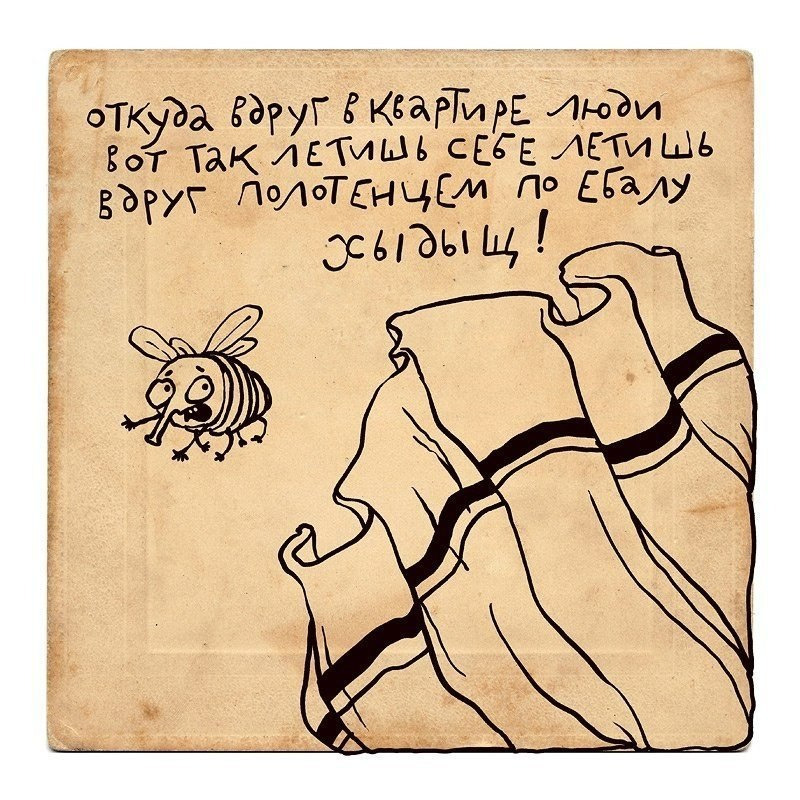 откуда вдруг в квартире люди
вот так летишь себе летишь
вдруг полотенцем по ебалу
хыдыщ!